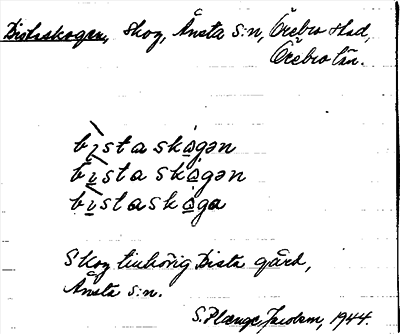 Bistaskogen, skog, Ånsta s:n, Örebro stad,
Örebro län.
bìstaskó̱gən
bì̱staskó̱gən
bì̱staskó̱ga
Skog tillhörig Bista gård,
Ånsta s:n.
S. Plænge Jacobson 1944.